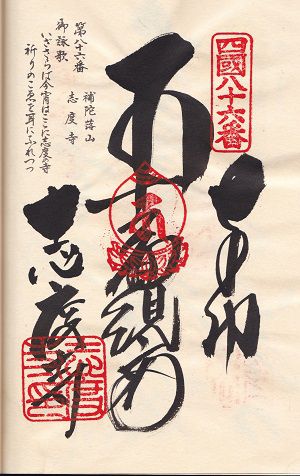 四國八十六番
奉納
十一面観世音
志度寺
第八十六番
補陀落山
志度寺
御詠歌
いざさらば今宵はここに志度寺
祈りのこゑを耳にふれつつ